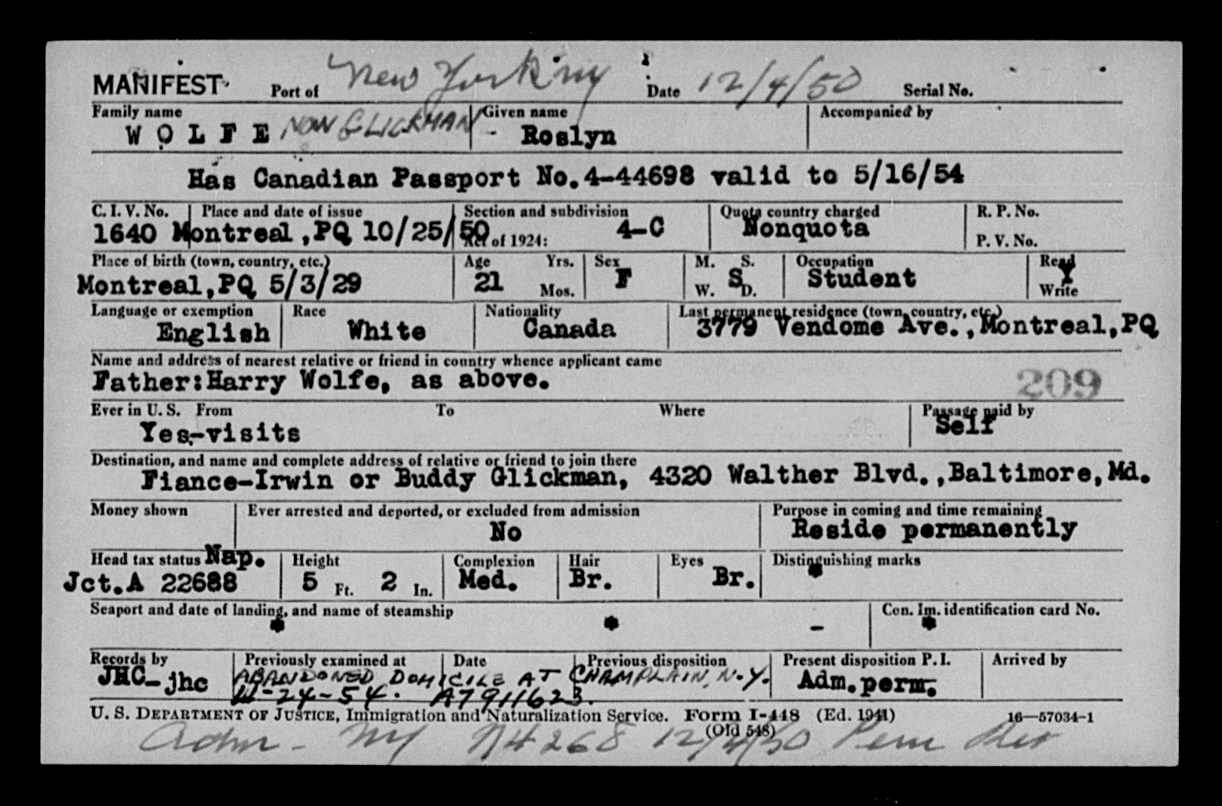 MANIFEST Port of New York NY Date 12/4/50 Serial No.
Family name Given name Accompanied by
WOLFE NOW GLICKMAN - Roslyn
Has Canadian Passport No.4-44698 valid to 5/16/54
C. I. V. No. Place and date of issue Section and subdivision Quota country charged R. P. No.
1640 Montreal,PQ 10/25/50 Act of 1924: 4-C Nonquota P. V. No.
Place of birth (town, country, etc.) Age Yrs. Sex M. S. Occupation Read
Montreal,PQ 5/3/29 21 Mos. F W. S D. Student Y Write
Language or exemption Race Nationality Last permanent residence (town, country, etc.)
English White Canada 3779 Vendome Ave.,Montreal,PQ
Name and address of nearest relative or friend in country whence applicant came
Father:Harry Wolfe, as above. 209
Ever in U. S. From To Where Passage paid by
Yes-visits Self
Destination, and name and complete address of relative or friend to join there
Fiance-Irwin or Buddy Glickman, 4320 Walther Blvd.,Baltimore,Md.
Money shown Ever arrested and deported, or excluded from admission Purpose in coming and time remaining
No Reside permanently
Head tax status Nap. Height Complexion Hair Eyes Distinguishing marks
Jct.A 22688 5 Ft. 2 In. Med. Br. Br. *
Seaport and date of landing, and name of steamship Con. Im. identification card No.
* * - *
Records by Previously examined at Date Previous disposition Present disposition P. I. Arrived by
JHC-jhc ABANDONED DOMICILE AT CHAMPLAIN, N.Y. Adm.perm.
11-24-54. A7911623.
U. S. DEPARTMENT OF JUSTICE, Immigration and Naturalization Service. Form I-448 (Ed. 1941) 16—57034-1
(Old 548)
Adm - NY 12/4/50 Perm